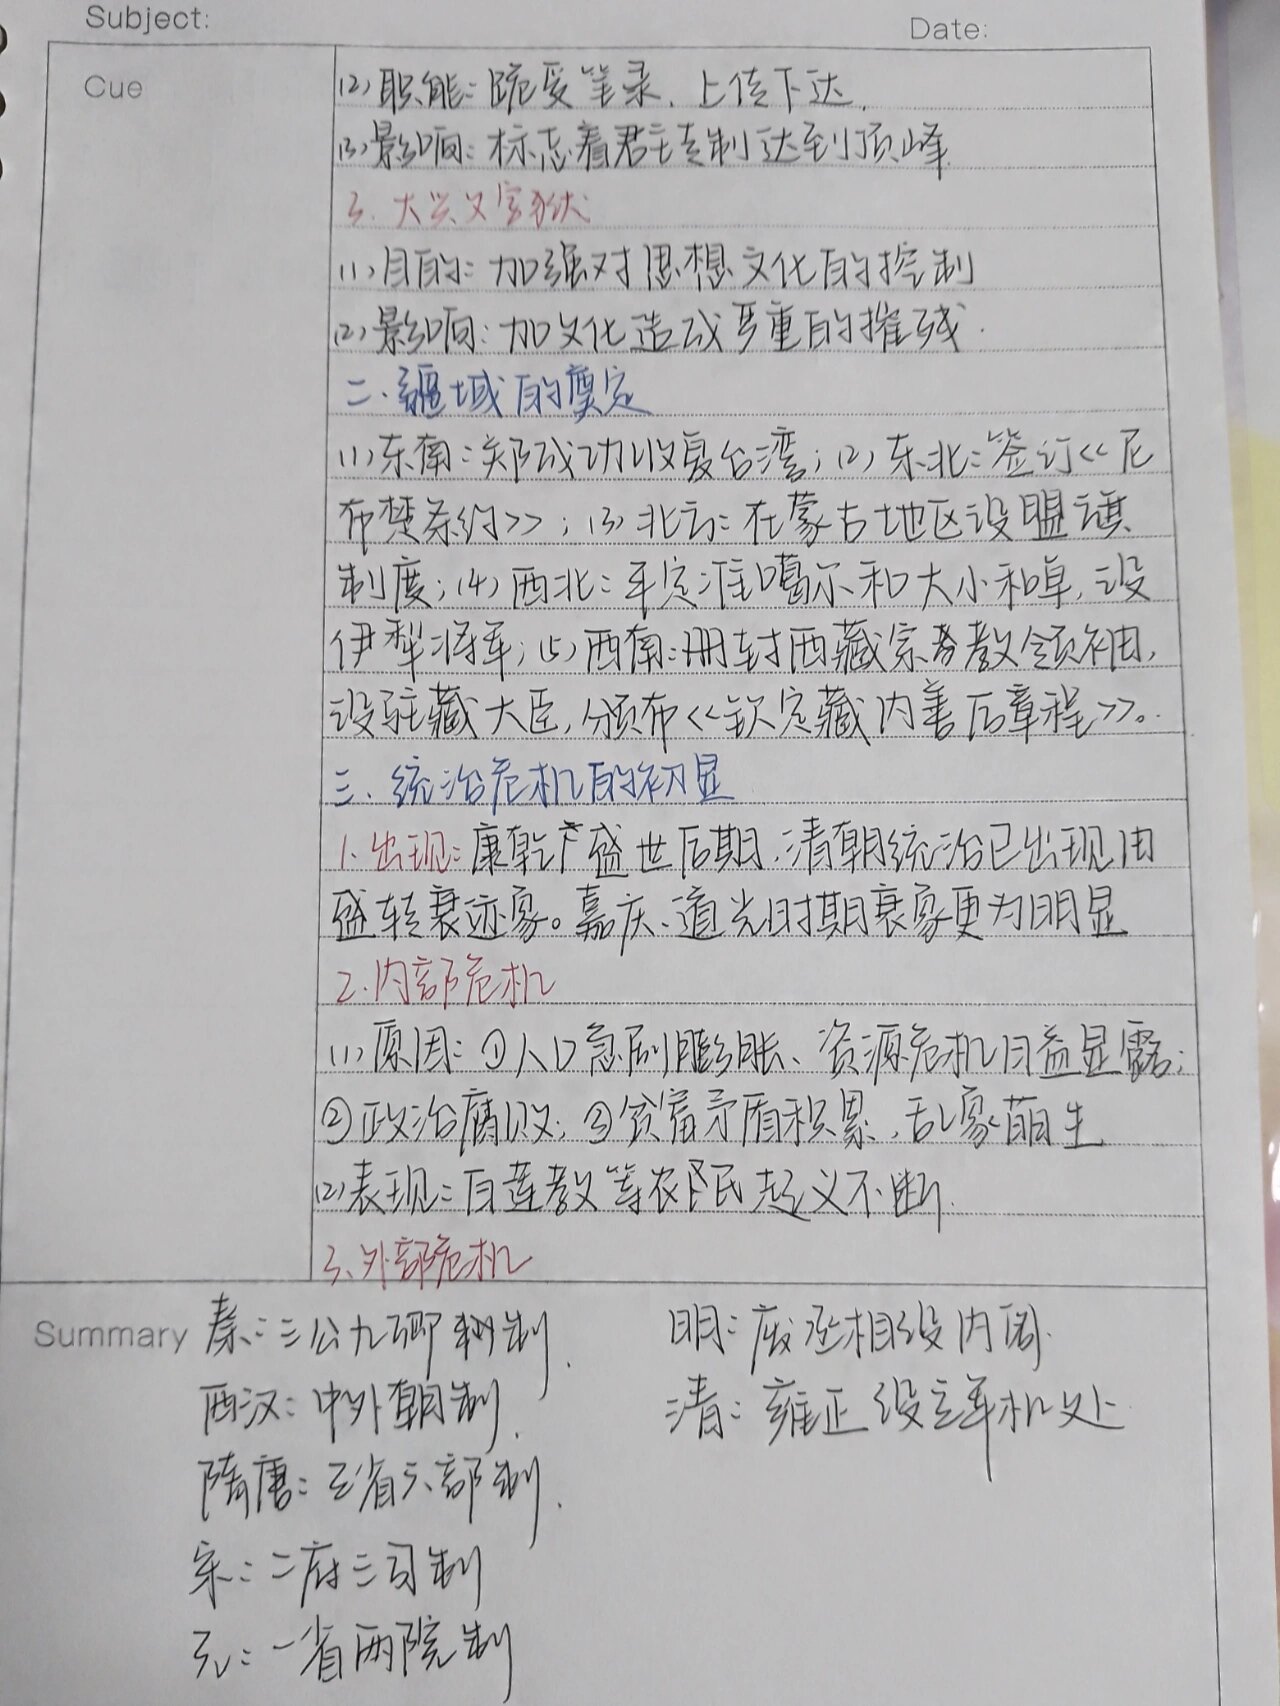 Subject:
Date:
Cue
(2)职能:跪受笔录、上传下达.
(3)影响:标志着君主专制达到顶峰
3.大兴文字狱
(1)目的:加强对思想文化的控制
(2)影响:加文化造成严重的摧残.
二.疆域的奠定
(1)东南:郑成功收复台湾;(2)东北:签订<<尼
布楚条约>>;(3)北方:在蒙古地区设盟旗
制度;(4)西北:平定准噶尔和大小和卓,设
伊犁将军;(5)西南:册封西藏宗教领袖,
设驻藏大臣,颁布<<钦定藏内善后章程>>。
三.统治危机的初显
1.出现:康乾盛世后期,清朝统治已出现由
盛转衰迹象。嘉庆、道光时期衰象更为明显
2.内部危机
(1)原因:①人口急剧膨胀、资源危机日益显露;
②政治腐败;③贫富矛盾积累,乱象萌生
(2)表现:白莲教等农民起义不断.
3.外部危机
Summary
秦:三公九卿制.
西汉:中外朝制.
隋唐:三省六部制.
宋:二府三司制
元:一省两院制
明:废丞相设内阁.
清:雍正设立军机处